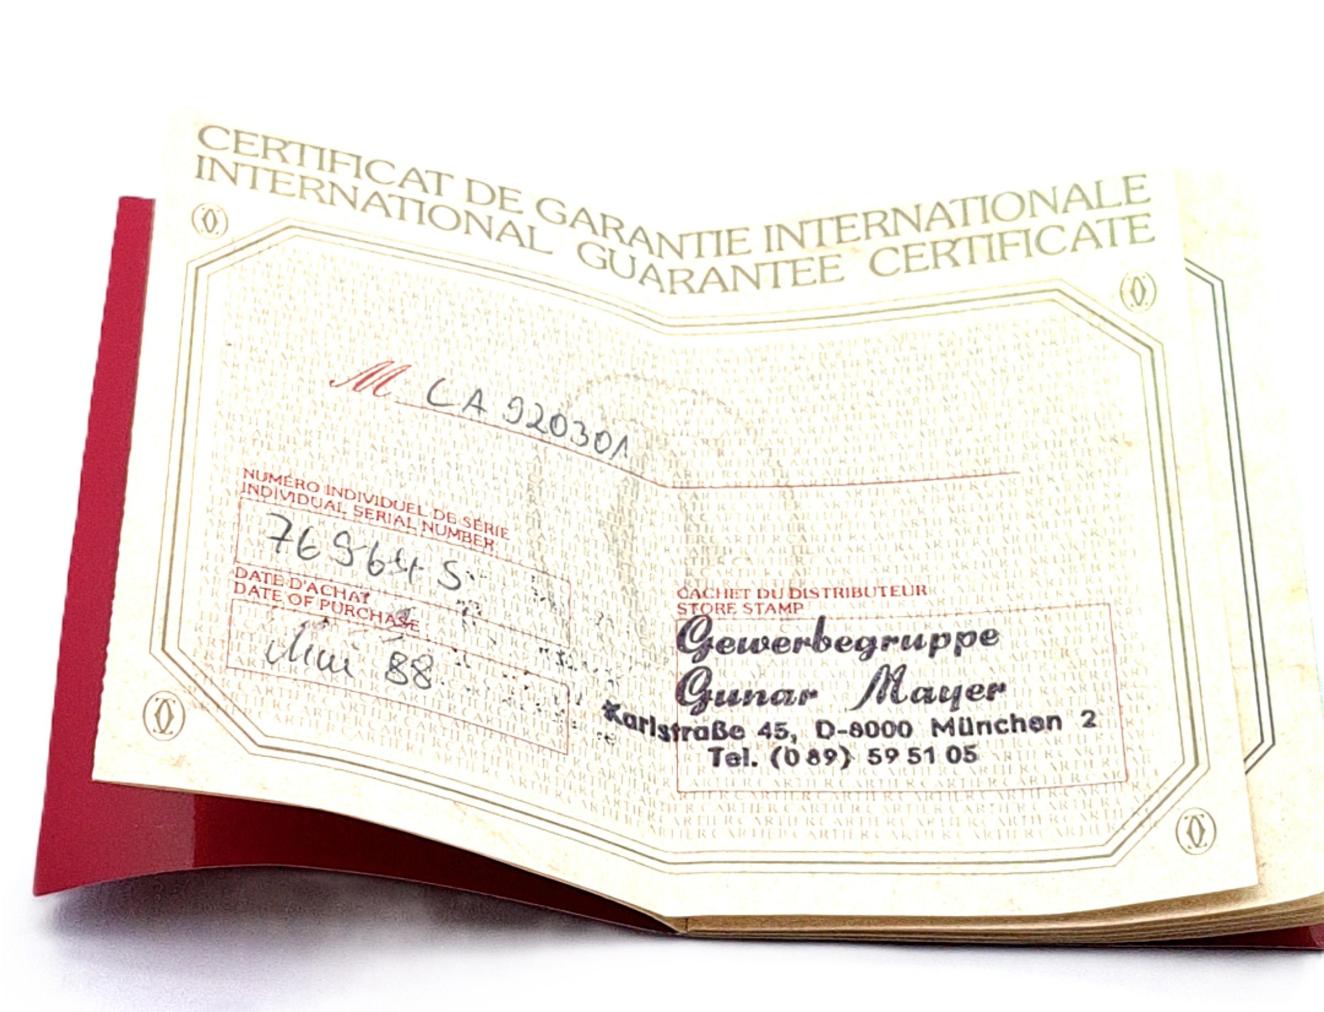 CERTIFICAT DE GARANTIE INTERNATIONALE
INTERNATIONAL GUARANTEE CERTIFICATE
M CA 920301
NUMÉRO INDIVIDUEL DE SÉRIE
INDIVIDUAL SERIAL NUMBER
769645
DATE D'ACHAT
DATE OF PURCHASE
Mai 88
CACHET DU DISTRIBUTEUR
STORE STAMP
Gewerbegruppe
Gunar Mayer
Karlstraße 45, D-8000 München 2
Tel. (0 89) 59 51 05